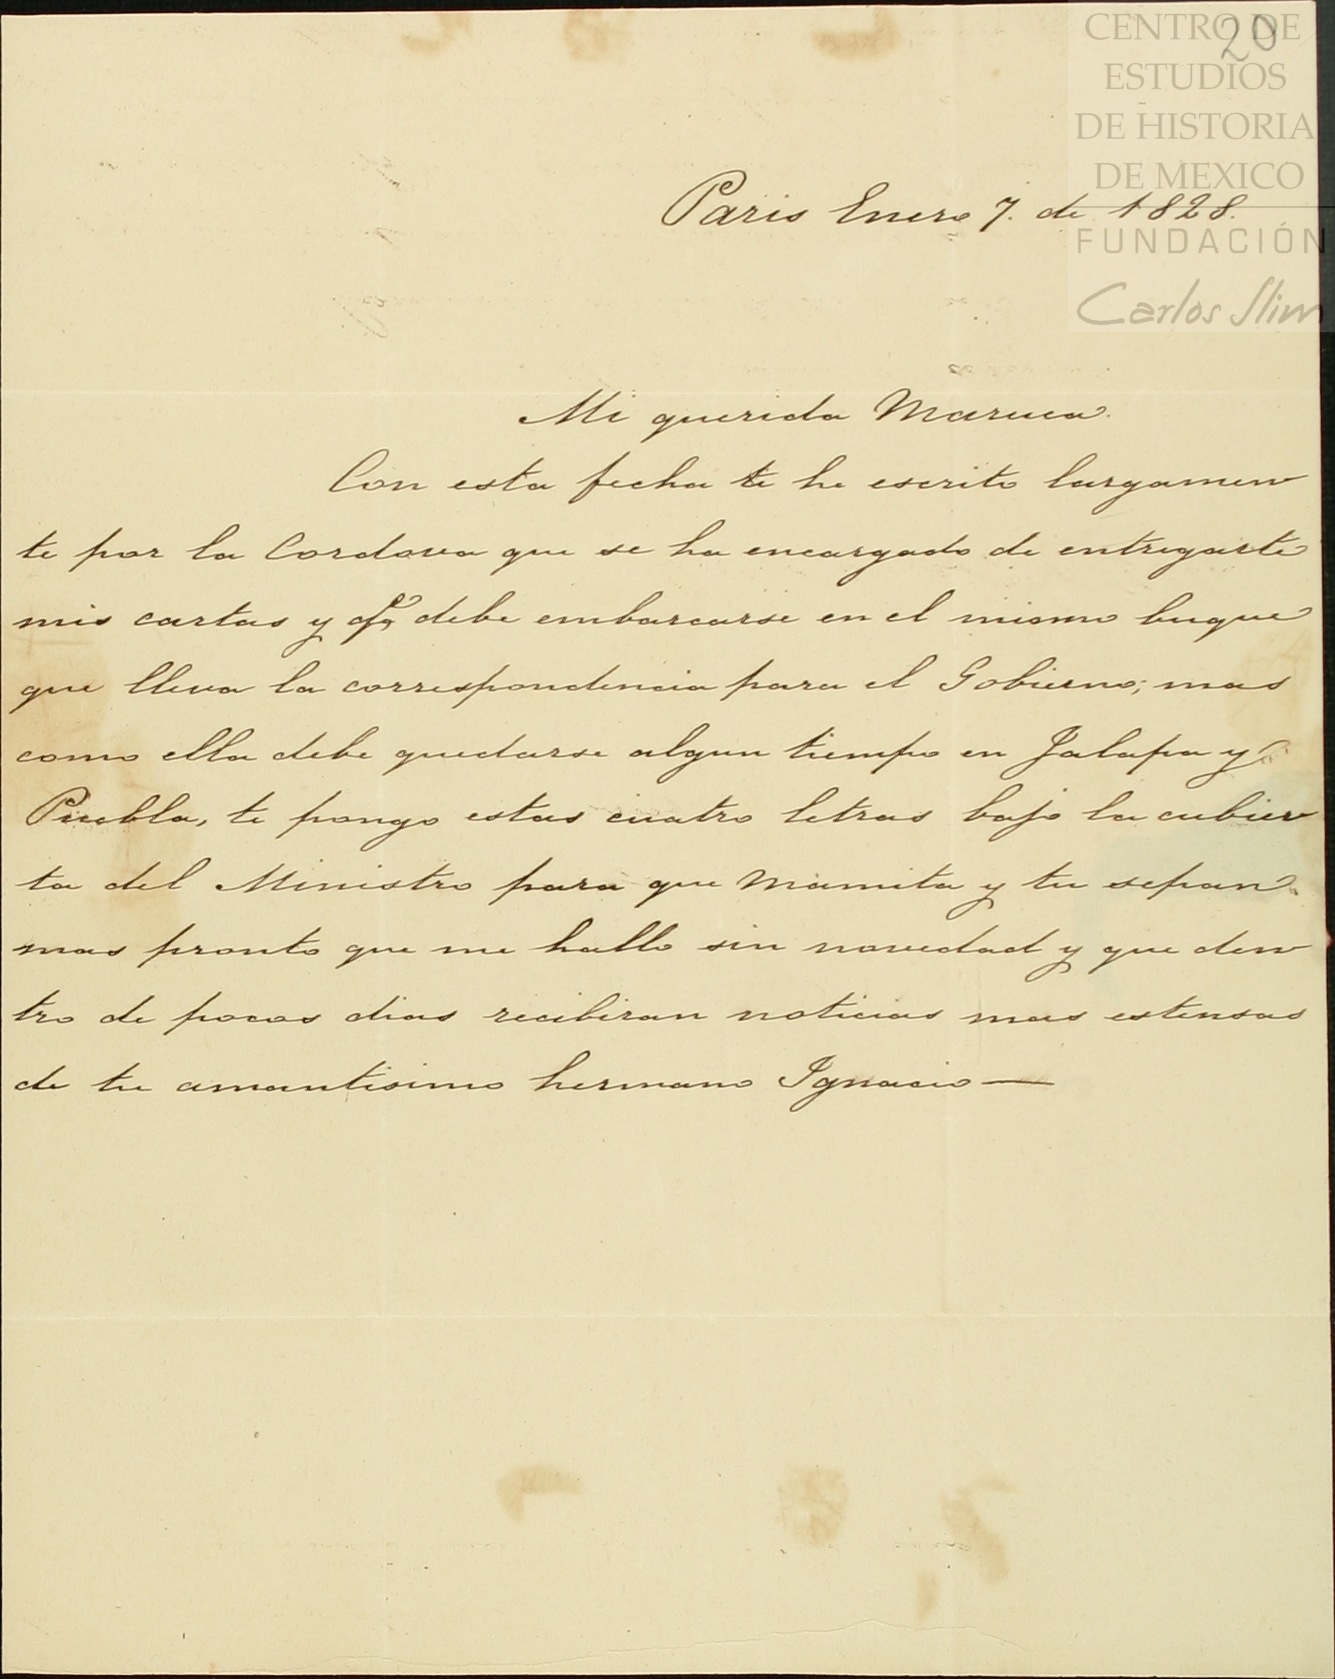 CENTRO DE
ESTUDIOS
DE HISTORIA
DE MEXICO
FUNDACIÓN
Carlos Slim
20
Paris Enero 7. de 1828.
Mi querida Maruca.
Con esta fecha te he escrito largamen
te por la Cordova que se ha encargado de entregarte
mis cartas y qe. debe embarcarse en el mismo buque
que lleva la correspondencia para el Gobierno; mas
como ella debe quedarse algun tiempo en Jalapa y
Puebla, te pongo estas cuatro letras bajo la cubier
ta del Ministro para que Mamita y tu sepan
mas pronto que me hallo sin novedad y que den
tro de pocos dias recibiran noticias mas estensas
de tu amantisimo hermano Ignacio —